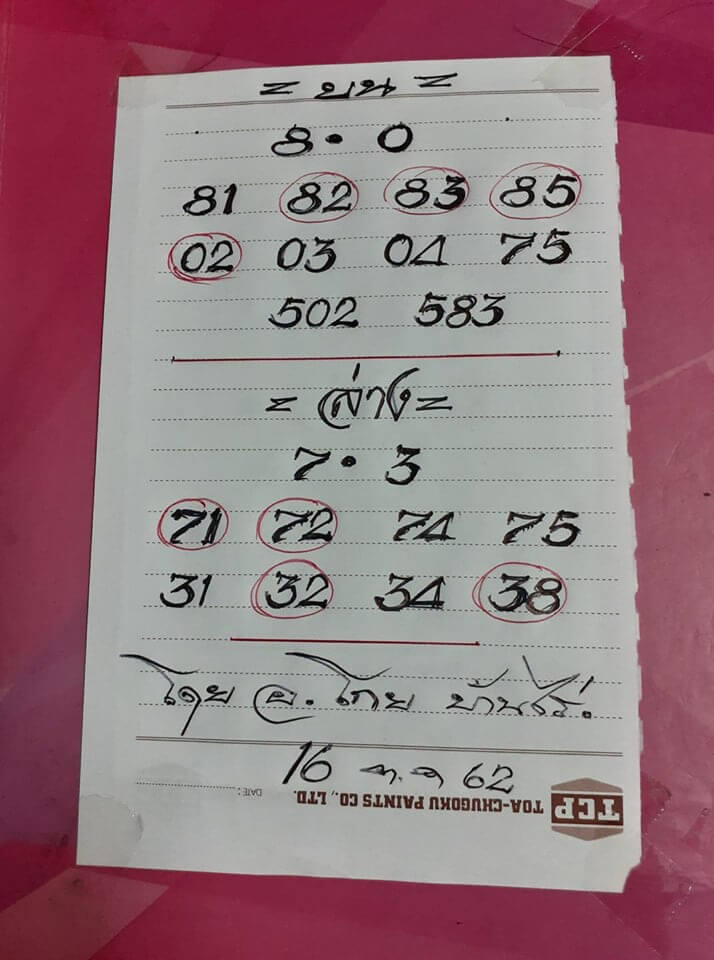 = บน =
8 • 0
81 82 83 85
02 03 04 75
502 583
= ล่าง =
7 • 3
71 72 74 75
31 32 34 38
โดย อ. โกย บ้านไร่.
16 ต.ค 62
DATE:
TOA-CHUGOKU PAINTS CO., LTD.
TCP